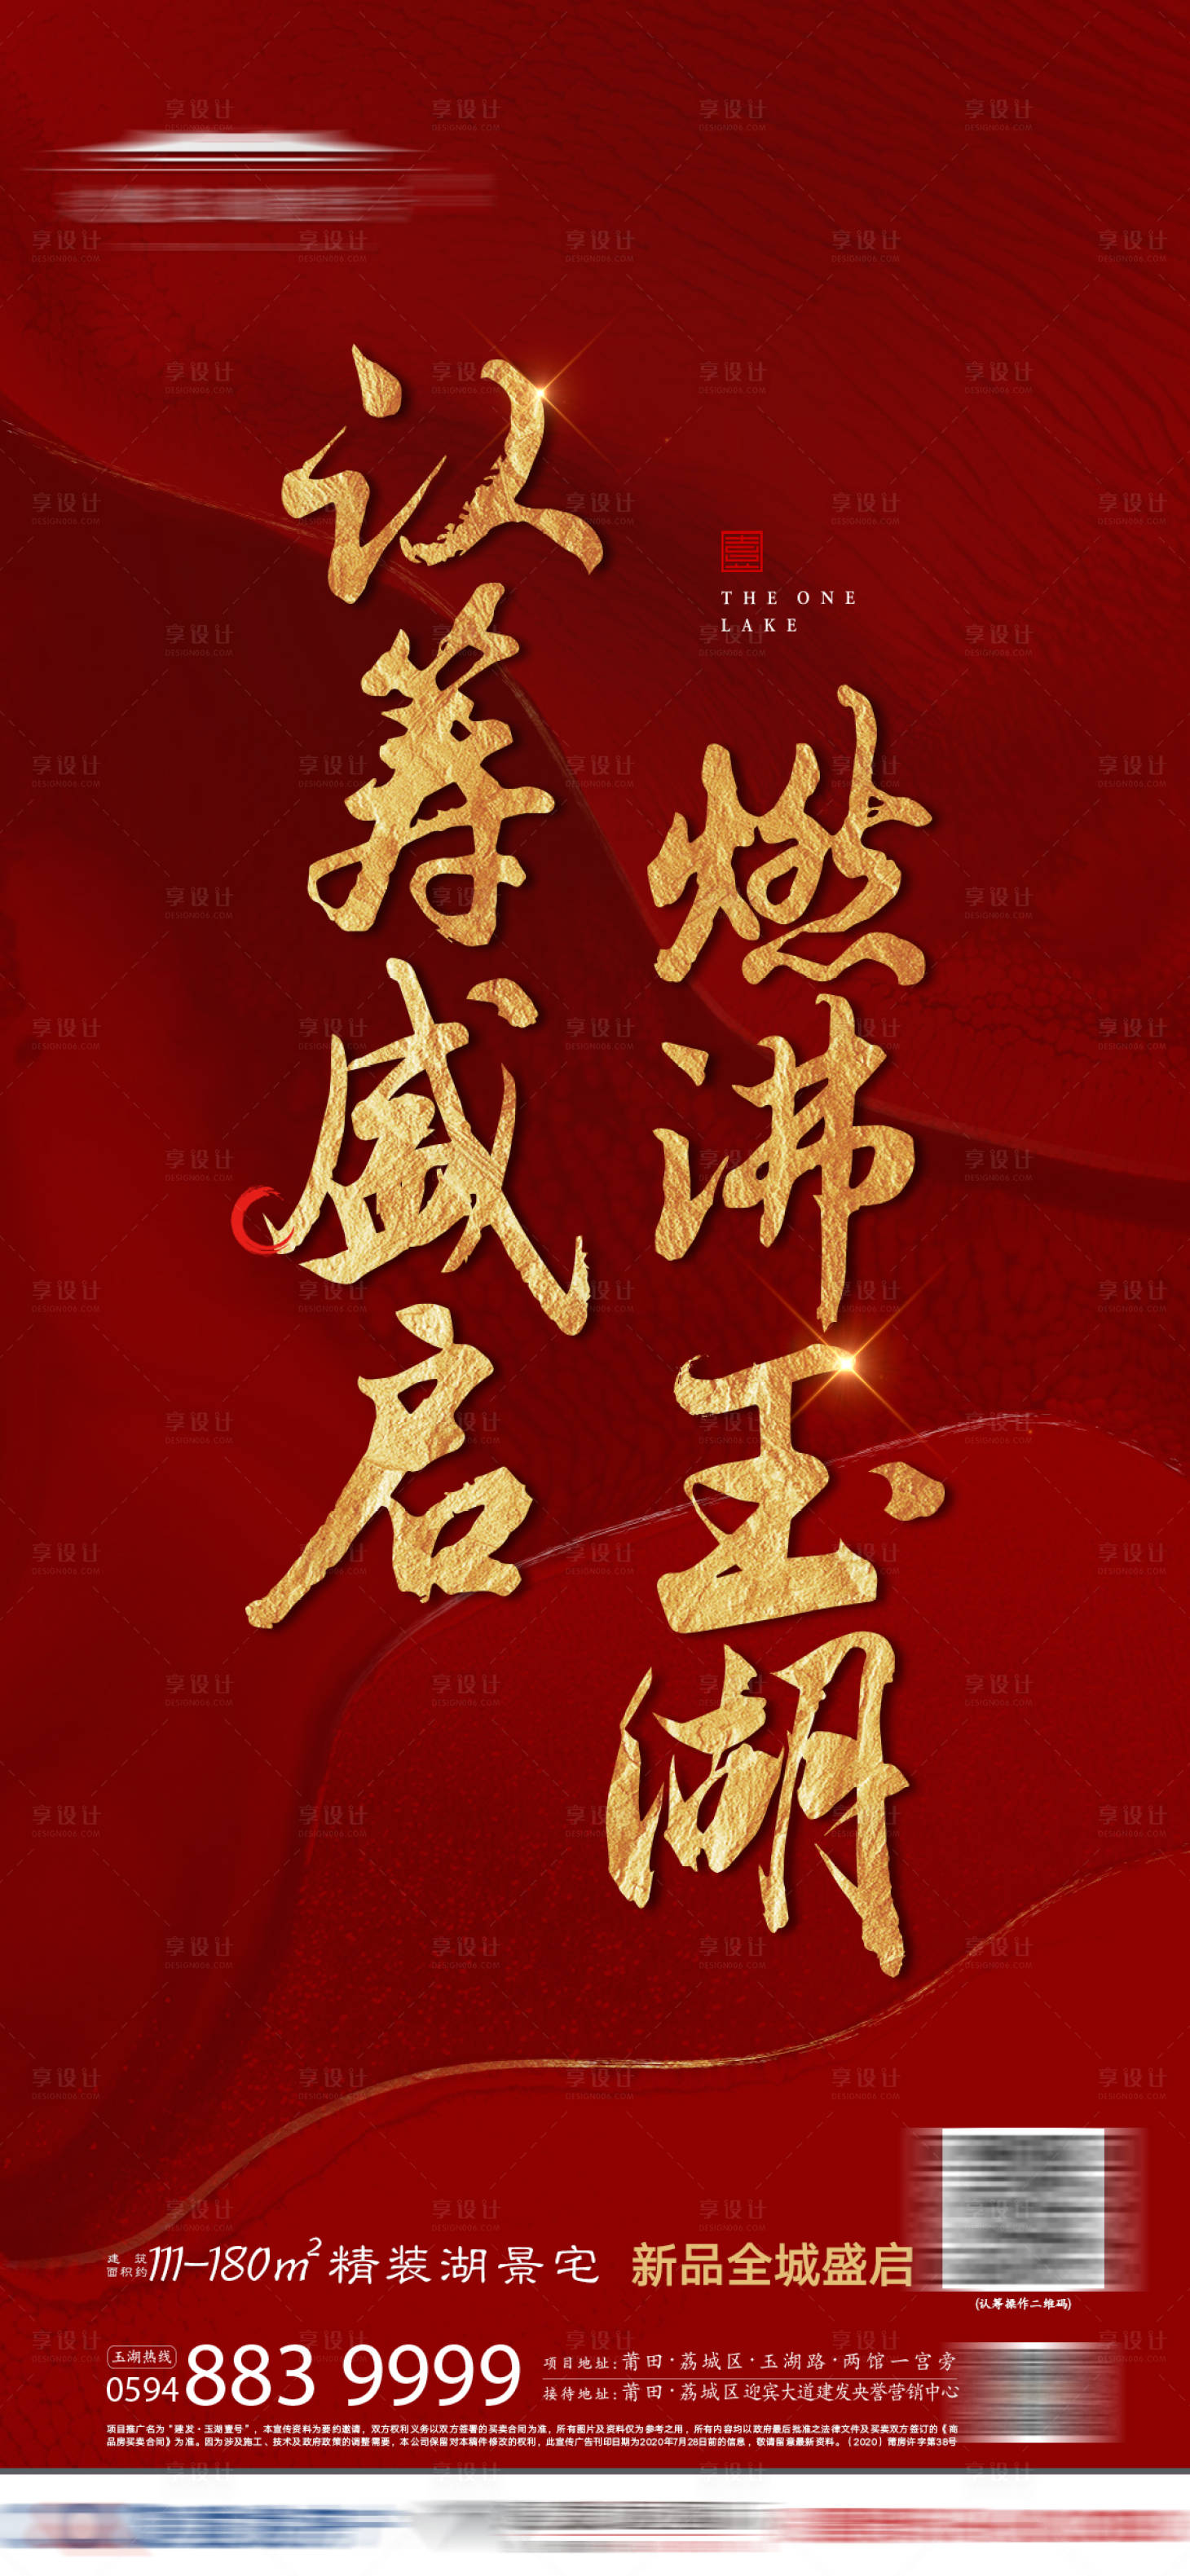 THE ONE
LAKE
燃沸玉湖
认筹盛启
建筑
面积约
111-180m²精装湖景宅
新品全城盛启
(认筹操作二维码)
玉湖热线
0594 883 9999
项目地址:莆田·荔城区·玉湖路·两馆一宫旁
接待地址:莆田·荔城区迎宾大道建发央誉营销中心
项目推广名为“建发·玉湖壹号”，本宣传资料为要约邀请，双方权利义务以双方签署的买卖合同为准，所有图片及资料仅为参考之用，所有内容均以政府最后批准之法律文件及买卖双方签订的《商
品房买卖合同》为准。因为涉及施工、技术及政府政策的调整需要，本公司保留对本稿件修改的权利，此宣传广告刊印日期为2020年7月28日前的信息，敬请留意最新资料。（2020）莆房许字第38号
享设计
DESIGN006.COM